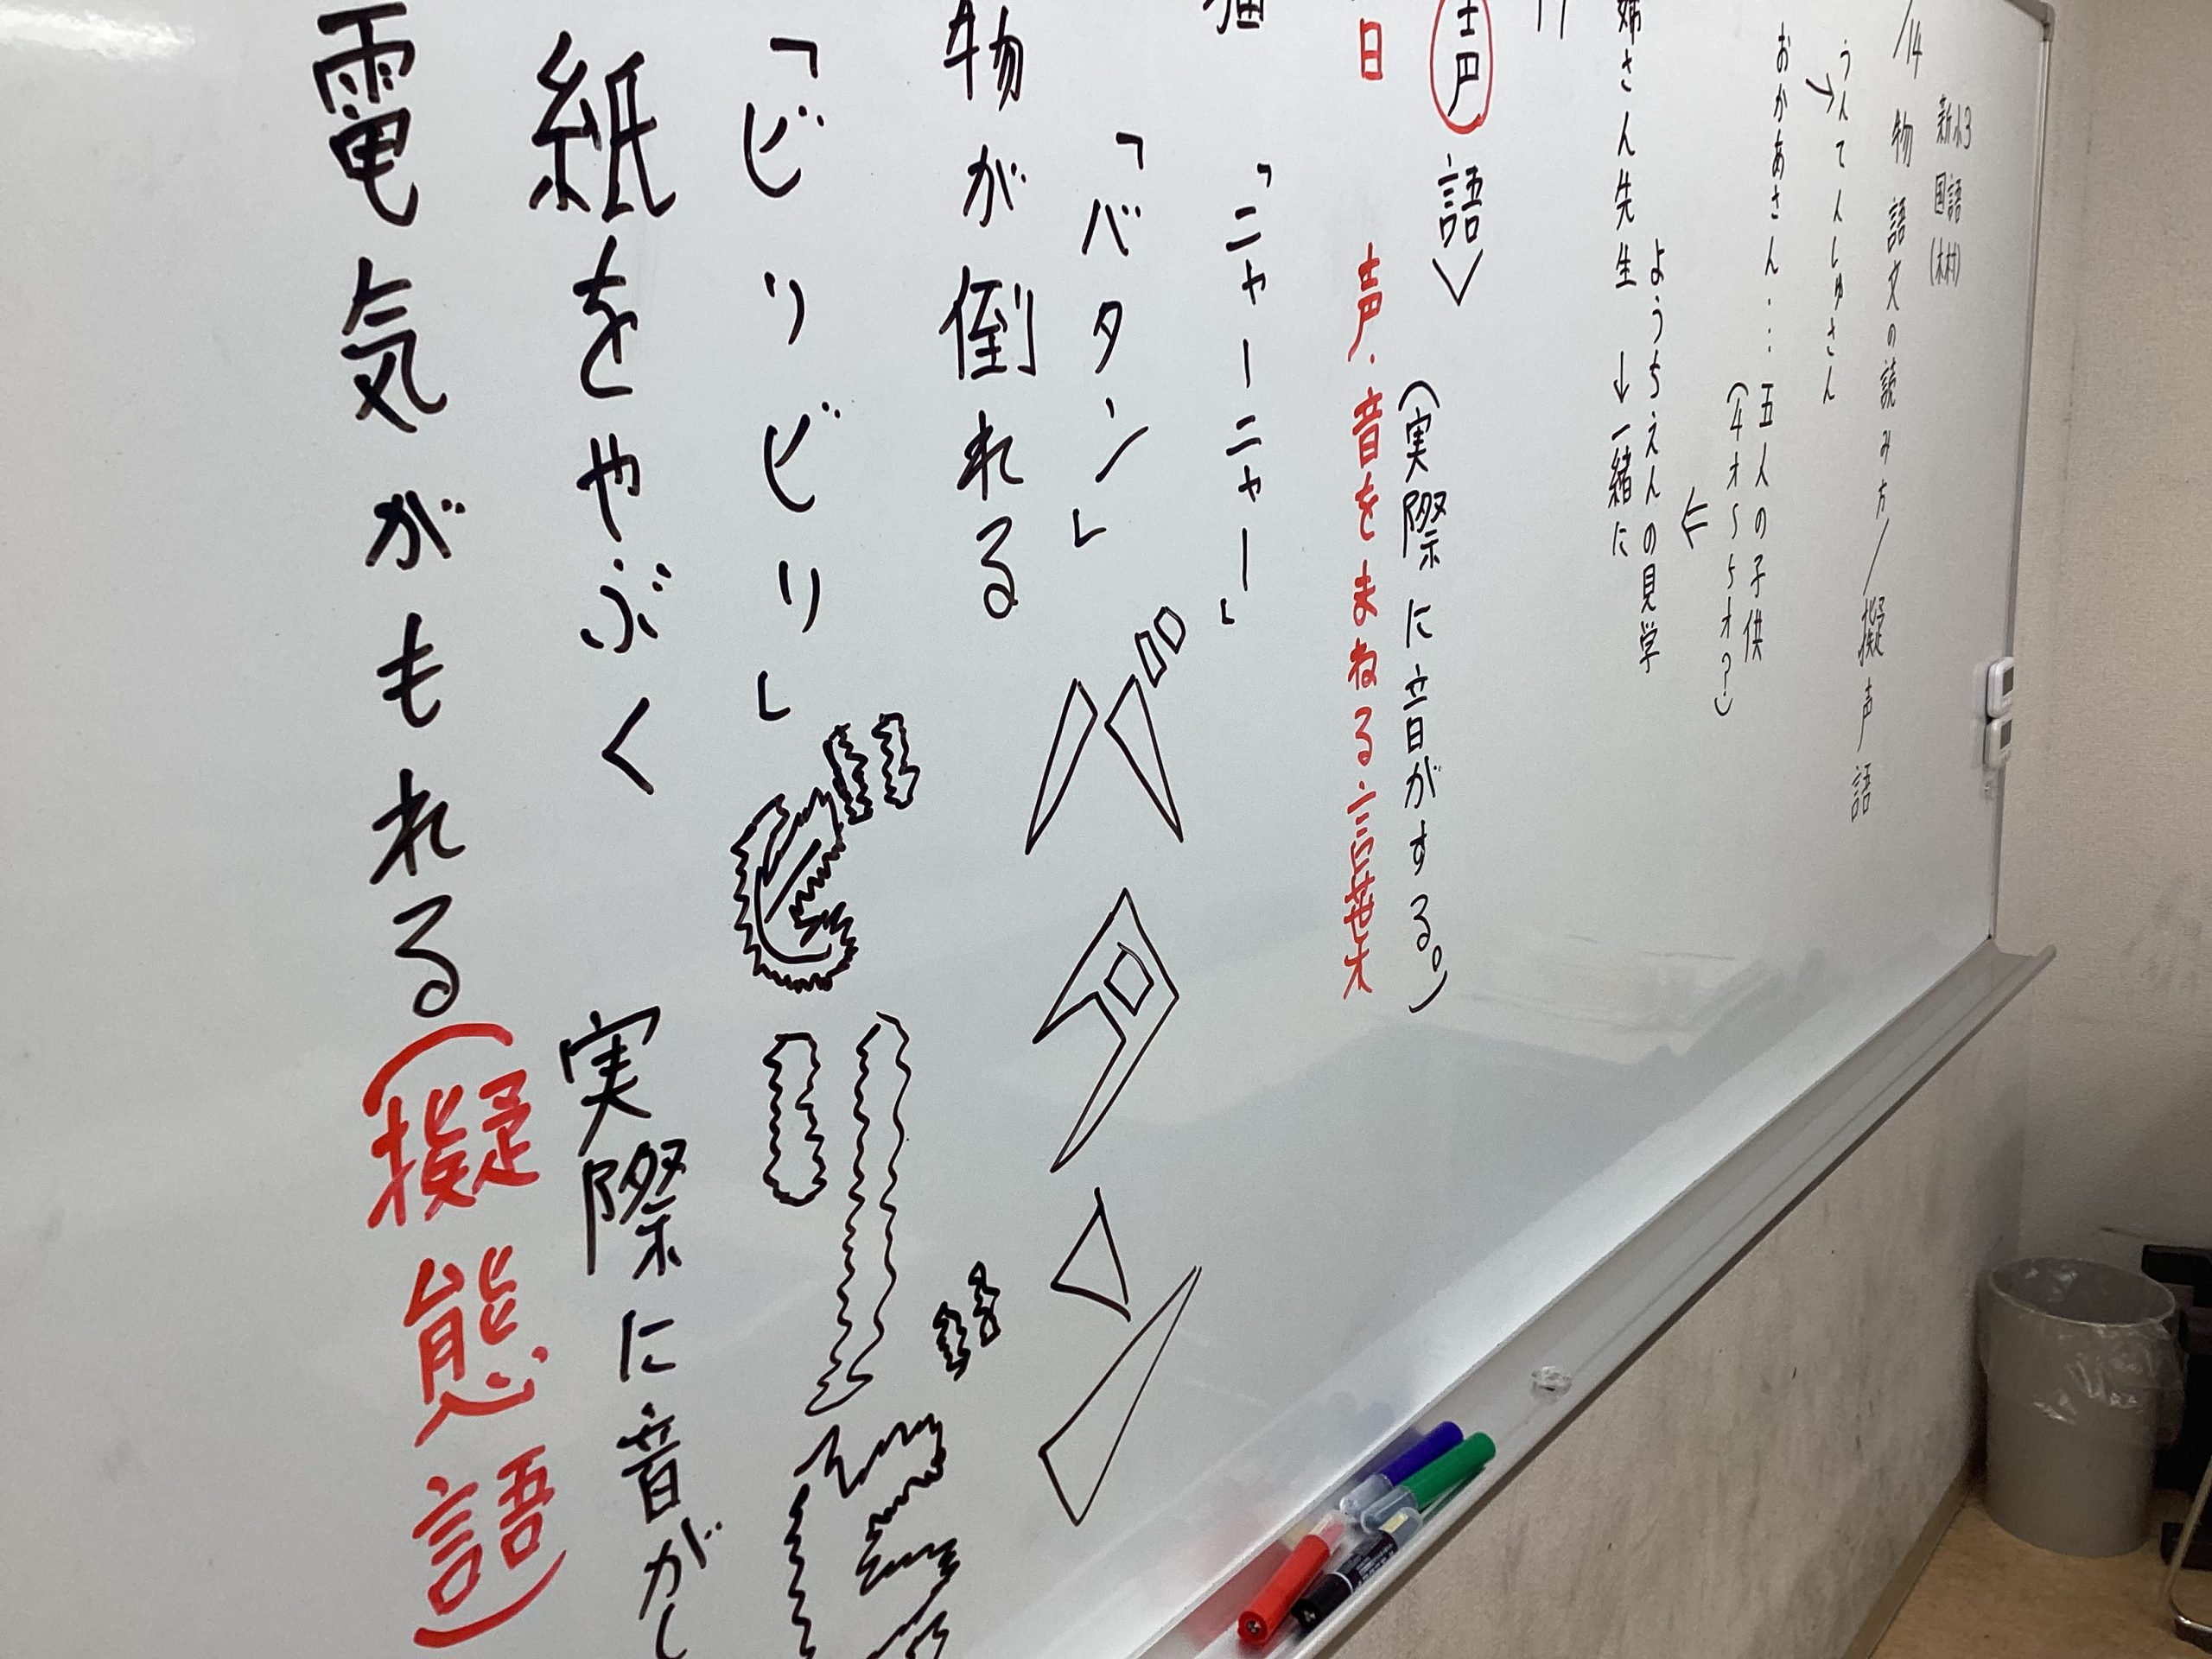 新小3 国語 (木村)
/14 物語文の読み方/擬声語
うんてんしゅさん
おかあさん……五人の子供
(4才〜5才?)
ようちえんの見学
姉さん先生 → 一緒に
声語>
(実際に音がする。)
声・音をまねる言葉
「ニャーニャー」
猫
「バタン」
バタン
物が倒れる
「ビリビリ」
ビリビリ
紙をやぶく 実際に音がし
電気がもれる(擬態語)